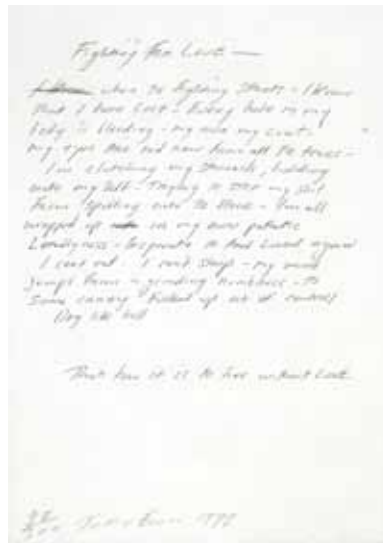 Fighting For Love —
when the fighting starts - I know
that I have lost - Every hole in my
body is bleeding - my nose my cunt -
my eyes are red raw from all the tears -
I'm clutching my stomach, holding
onto my
from spilling onto the floor - I'm all
wrapped up in my own pathetic
Loneliness - Desperate to feel Loved again
I cant eat I cant sleep - my mind
jumps from a grinding numbness - to
Some crazy fucked up out of control
Dog like hell
That how it is to live without Love
Emin 1998